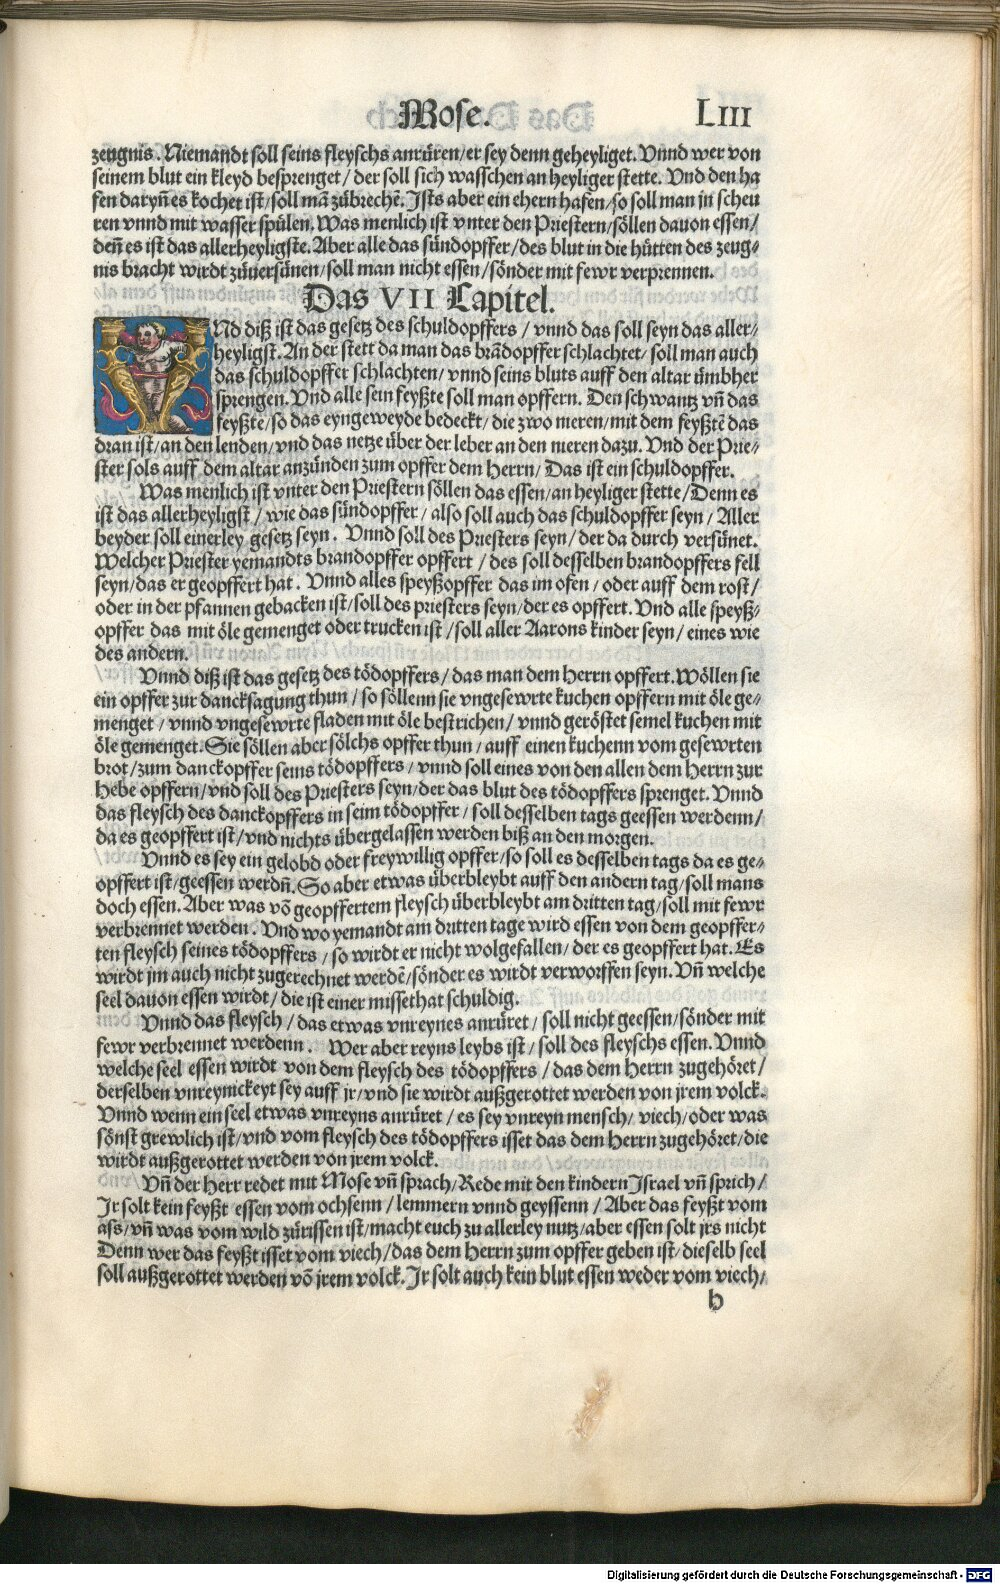 Mose. LIII
zeugnis. Niemandt soll seins fleyschs anrüren/er sey denn geheyliget. Vnnd wer von
seinem blut ein kleyd besprenget/der soll sich wasschen an heyliger stette. Vnd den ha
fen daryn̄ es kochet ist/soll mā zůbrechē. Ists aber ein ehern hafen/so soll man jn scheu
ren vnnd mit wasser spülen. Was menlich ist vnter den Priestern/söllen dauon essen/
den̄ es ist das allerheyligste. Aber alle das sündopffer/des blut in die hütten des zeug⸗
nis bracht wirdt zůuersünen/soll man nicht essen/sönder mit fewr verprennen.
Das VII Capitel.
VNd diß ist das gesetz des schuldopffers/vnnd das soll seyn das aller⸗
heyligst. An der stett da man das brādopffer schlachtet/soll man auch
das schuldopffer schlachten/vnnd seins bluts auff den altar ümbher
sprengen. Vnd alle sein feyßte soll man opffern. Den schwantz vn̄ das
feyßte/so das eyngeweyde bedeckt/die zwo nieren/mit dem feyßtē das
dran ist/an den lenden/vnd das netze über der leber an den nieren dazu. Vnd der Prie⸗
ster sols auff dem altar anzünden zum opffer dem Herrn/Das ist ein schuldopffer.
Was menlich ist vnter den Priestern söllen das essen/an heyliger stette/Denn es
ist das allerheyligst/wie das sündopffer/also soll auch das schuldopffer seyn/Aller
beyder soll einerley gesetz seyn. Vnnd soll des Priesters seyn/der da durch versünet.
Welcher Priester yemandts brandopffer opffert/des soll desselben brandopffers fell
seyn/das er geopffert hat. Vnnd alles speyßopffer das im ofen/oder auff dem rost/
oder in der pfannen gebacken ist/soll des priesters seyn/der es opffert. Vnd alle speyß⸗
opffer das mit öle gemenget oder trucken ist/soll aller Aarons kinder seyn/eines wie
des andern.
Vnnd diß ist das gesetz des tödopffers/das man dem Herrn opffert. Wöllen sie
ein opffer zur dancksagung thun/so söllenn sie vngesewrte kuchen opffern mit öle ge⸗
menget/vnnd vngesewrte fladen mit öle bestrichen/vnnd geröstet semel kuchen mit
öle gemenget. Sie söllen aber sölchs opffer thun/auff einen kuchenn vom gesewrten
brot/zum danckopffer seins tödopffers/vnnd soll eines von den allen dem Herrn zur
Hebe opffern/vnd soll des Priesters seyn/der das blut des tödopffers sprenget. Vnnd
das fleysch des danckopffers in seim tödopffer/soll desselben tags geessen werdenn/
da es geopffert ist/vnd nichts übergelassen werden biß an den morgen.
Vnnd es sey ein gelobd oder freywillig opffer/so soll es desselben tags da es ge⸗
opffert ist/geessen werdn̄. So aber etwas überbleybt auff den andern tag/soll mans
doch essen. Aber was vō geopffertem fleysch überbleybt am dritten tag/soll mit fewr
verbrennet werden. Vnd wo yemandt am dritten tage wird essen von dem geopffer⸗
ten fleysch seines tödopffers/so wirdt er nicht wolgefallen/der es geopffert hat. Es
wirdt jm auch nicht zugerechnet werdē/sönder es wirdt verworffen seyn. Vn̄ welche
seel dauon essen wirdt/die ist einer missethat schuldig.
Vnnd das fleysch/das etwas vnreynes anrüret/soll nicht geessen/sönder mit
fewr verbrennet werdenn. Wer aber reyns leybs ist/soll des fleyschs essen. Vnnd
welche seel essen wirdt von dem fleysch des tödopffers/das dem Herrn zugehöret/
derselben vnreynickeyt sey auff jr/vnd sie wirdt außgerottet werden von jrem volck.
Vnnd wenn ein seel etwas vnreyns anrüret/es sey vnreyn mensch/viech/oder was
sönst grewlich ist/vnd vom fleysch des tödopffers isset das dem Herrn zugehöret/die
wirdt außgerottet werden von jrem volck.
Vn̄ der Herr redet mit Mose vn̄ sprach/Rede mit den kindern Israel vn̄ sprich/
Ir solt kein feyßt essen vom ochsenn/lemmern vnnd geyssenn/Aber das feyßt vom
ass/vn̄ was vom wild zůrissen ist/macht euch zu allerley nutz/aber essen solt jrs nicht
Denn wer das feyßt isset vom viech/das dem Herrn zum opffer geben ist/dieselb seel
soll außgerottet werden vō jrem volck. Ir solt auch kein blut essen weder vom viech/
h
Digitalisierung gefördert durch die Deutsche Forschungsgemeinschaft - DFG